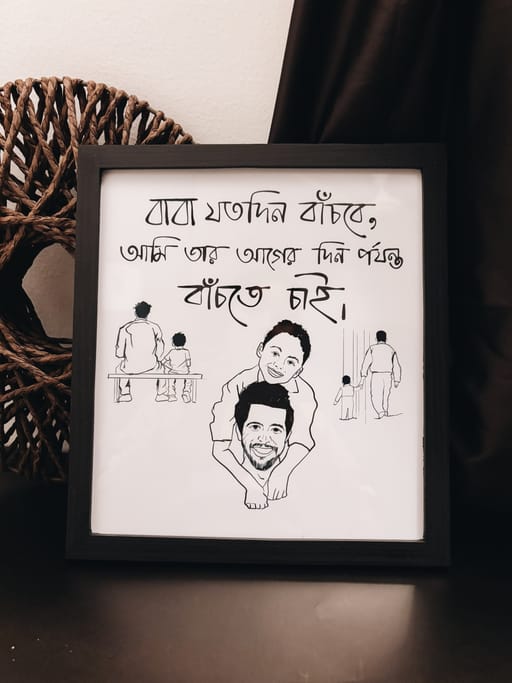 বাবা যতদিন বাঁচবে,
আমি তার আগের দিন পর্যন্ত
বাঁচতে চাই।